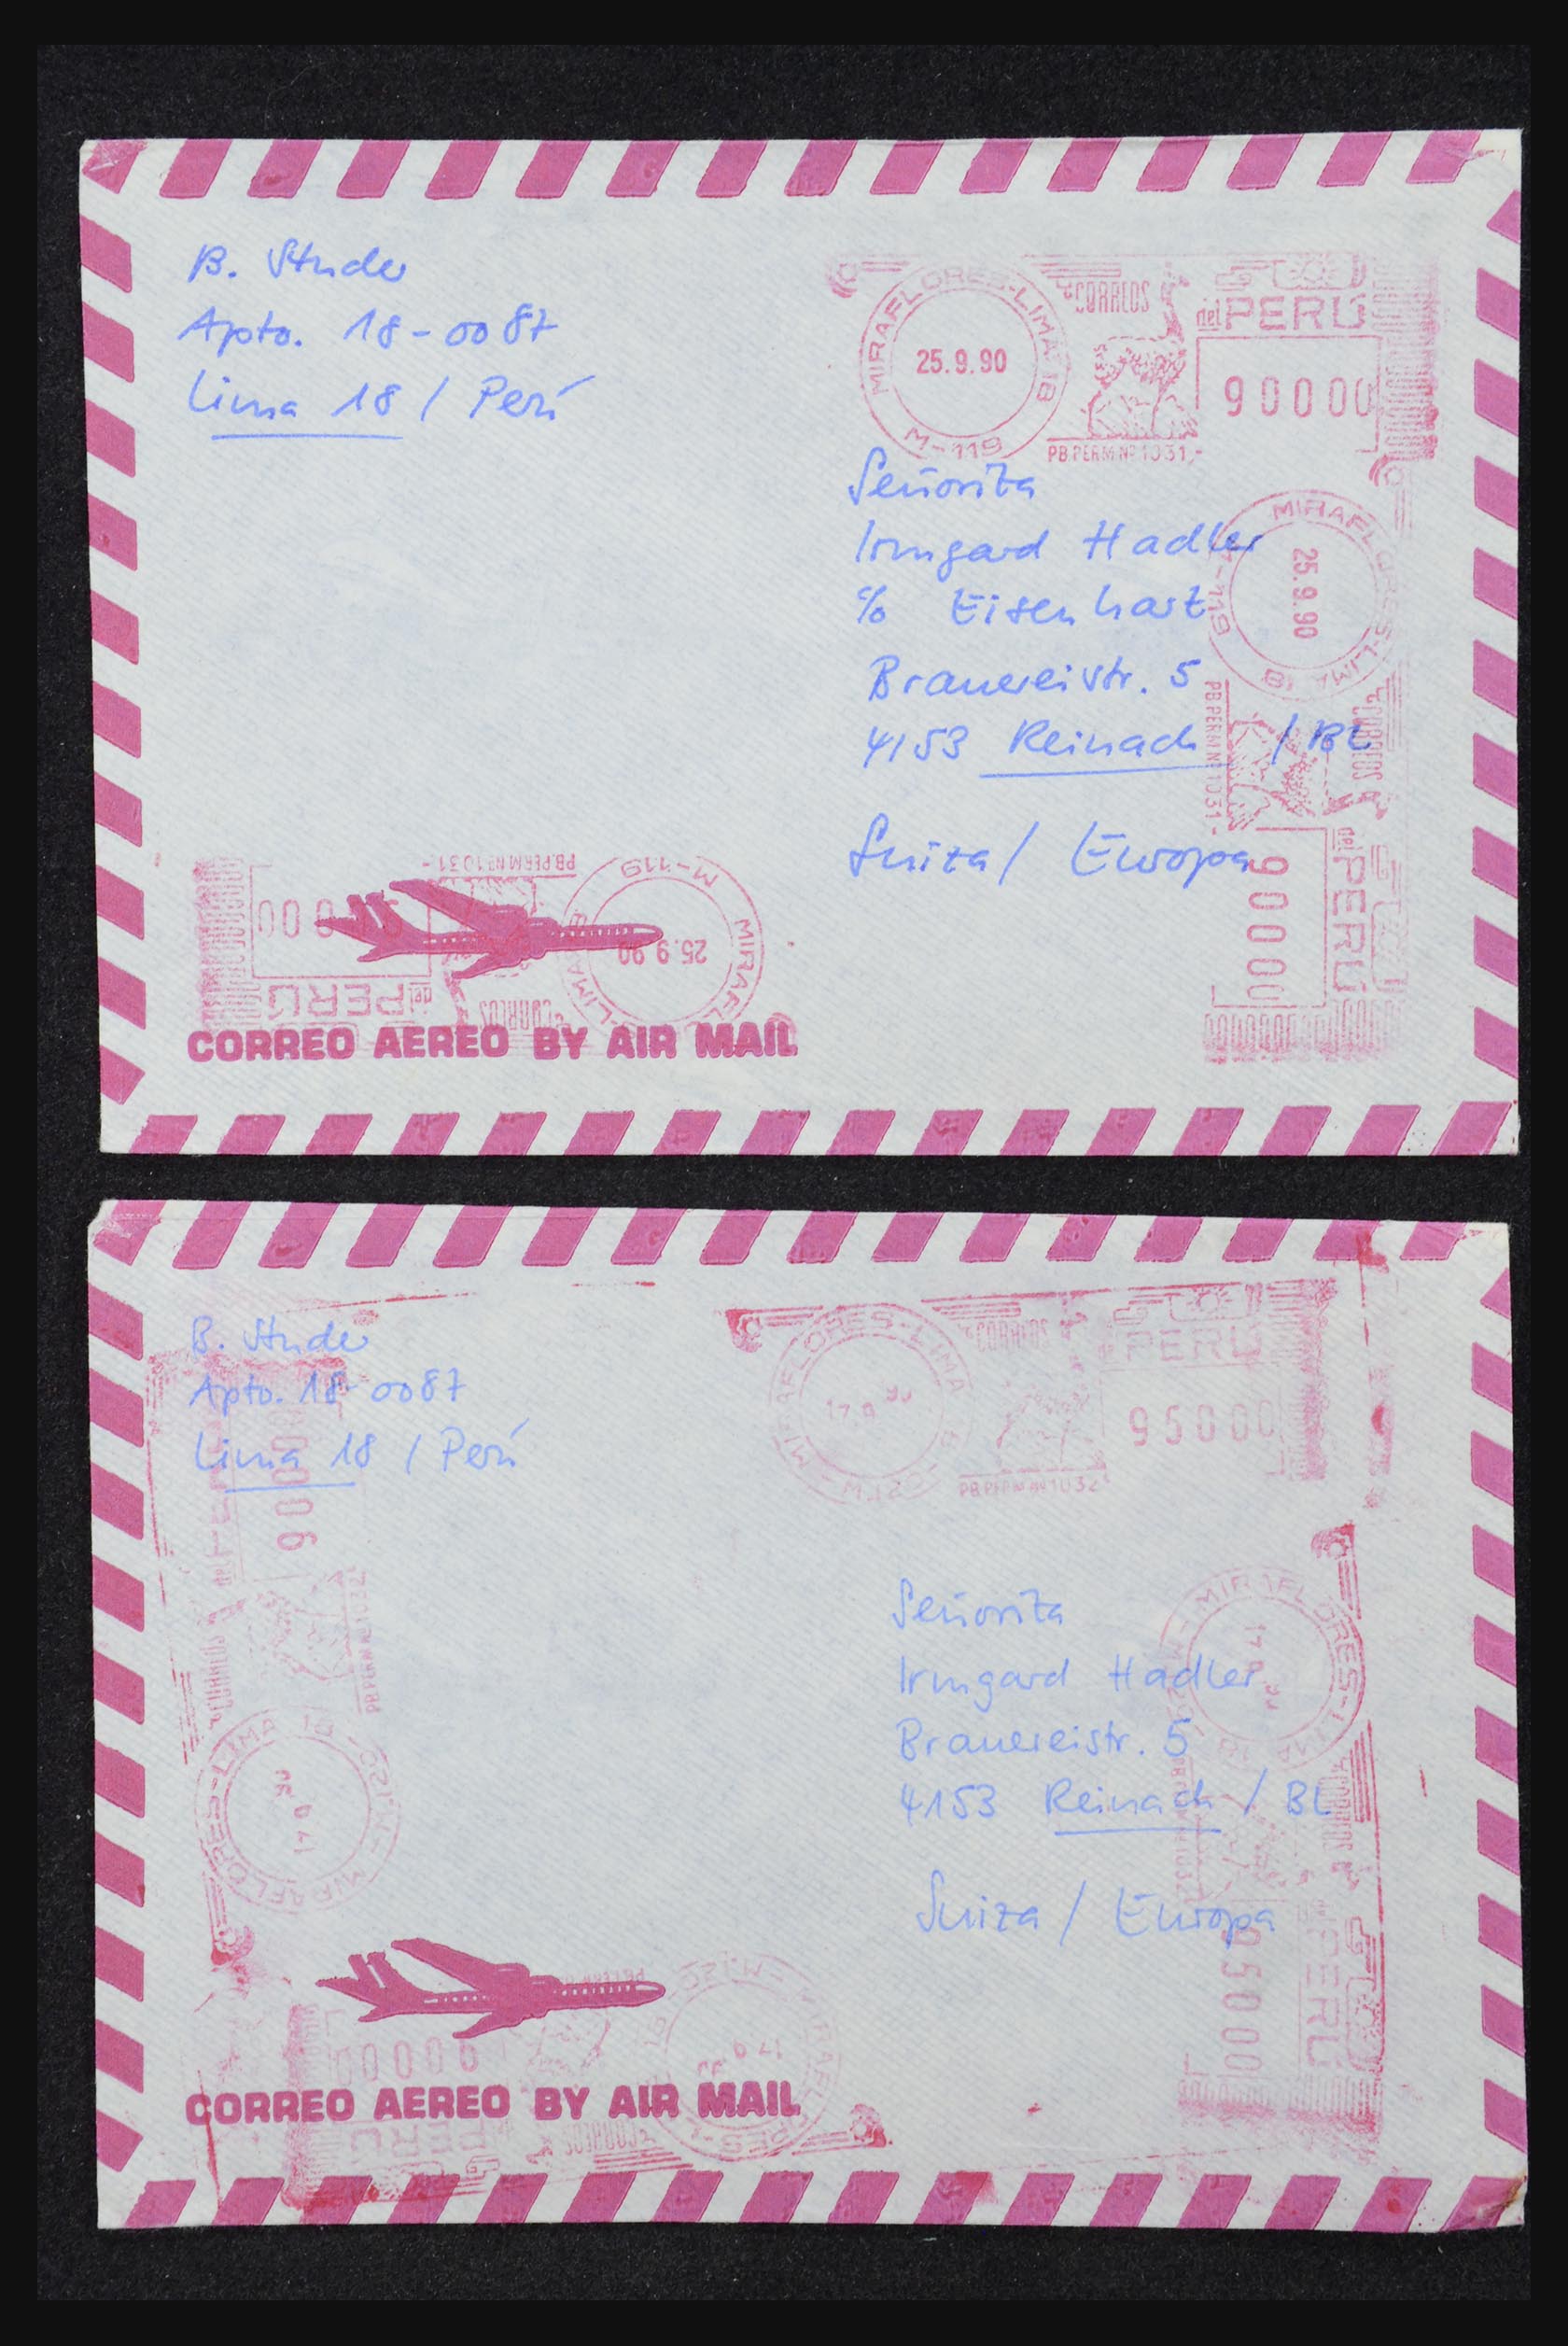 B. Studer
Apto. 18-0087
Lima 18 / Perú
MIRAFLORES-LIMA 18
25.9.90
M-119
CORREOS
del PERÚ
90000
PB.PERM.Nº 1031.-
Señorita
Irmgard Hadler
% Eisenhart
Brauereistr. 5
4153 Reinach / BL
Suiza / Europa
MIRAFLORES-LIMA 18
25.9.90
M-119
CORREOS
del PERÚ
90000
PB.PERM.Nº 1031.-
PB.PERM.Nº 1031.-
M-119
25.9.90
CORREOS
del PERÚ
CORREO AEREO BY AIR MAIL
B. Studer
Apto. 18-0087
Lima 18 / Perú
MIRAFLORES-LIMA
CORREOS
PERÚ
95000
PB.PERM.Nº 1032
Señorita
Irmgard Hadler
Brauereistr. 5
4153 Reinach / BL
Suiza / Europa
MIRAFLORES-LIMA 18
CORREOS
del PERÚ
95000
90000
del
CORREOS
PB.PERM.Nº 1032
MIRAFLORES-LIMA 18
90000
PERÚ
CORREOS
CORREO AEREO BY AIR MAIL